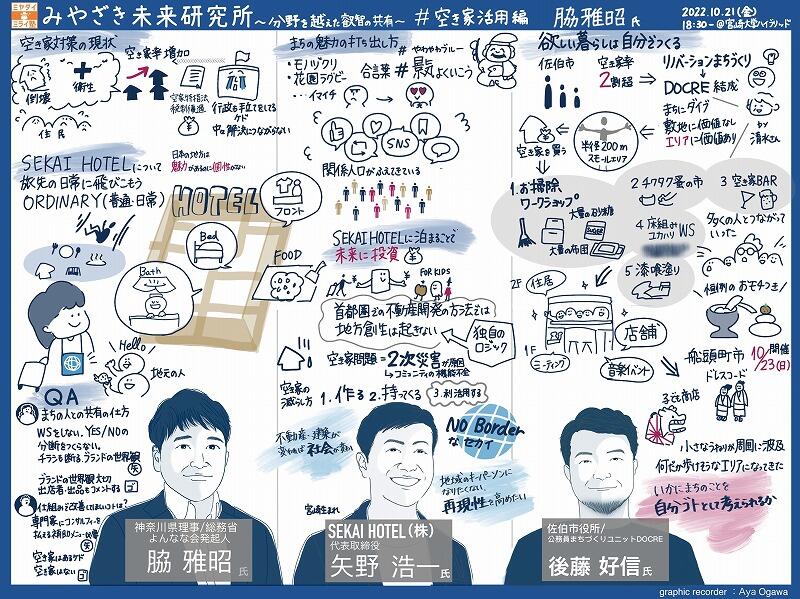 ミヤダイ
ミライ塾
みやざき未来研究所～分野を越えた叡智の共有～ #空き家活用編 脇雅昭氏
2022.10.21(金)
18:30-@宮崎大学ハイブリッド
空き家対策の現状
空き家率増加
倒壊
衛生
住民
行政も手立てをしてる
ケド
中々解決につながらない
SEKAI HOTELについて
旅先の日常に飛びこもう
ORDINARY(普通・日常)
日本の地方は
魅力があるのに個性がない
HOTEL
フロント
Bed
Bath
FOOD
Hello
地元の人
QA
まちの人との共有の仕方
WSをしない。YES/NOの
分断をつくらない。
チラシも断る、ブランドの世界観
ブランドの世界観大切
出店者・出品もコメントする
仕組みが改善してほしいコトは?
専門家にコンサルフィーを
空き家はあるケド
空き家はない
まちの魅力の打ち出し方
・モノヅクリ
・花園ラグビー
…イマイチ
やわやわブルー
合言葉#景気よくいこう
SNS
関係人口がふえてきている
SEKAI HOTELに泊まることで
未来に投資
FOR KIDS
首都圏での不動産開発の方法では
地方創生は起きない
独自の
ロジック
空き家問題=2次災害が原因
→コミュニティの機能不全
空き家の
減らし方
1.作る 2.持ってくる 3.利活用する
不動産・建築が
変われば社会が変わる
NO Border
なセカイ
地域のキーパーソンに
なりたくない。
再現性を高めたい
宮崎生まれ
欲しい暮らしは自分でつくる
佐伯市
空き家率
2割超
リノベーションまちづくり
DOCRE結成
まちにダイブ
敷地に価値なし
エリアに価値あり
清水さん
空き家を買う
半径200m
スモールエリア
1.お掃除
ワークショップ
大量のお砂糖
SUGAR
大量の布団
2.チクタク蚤の市
3.空き家BAR
4.床組み
ユカハリWS
5.漆喰塗り
多くの人とつながって
いった
恒例のおモチつき!
2F
住居
1F
店舗
ミーティング
音楽イベント
船頭町市
ドレスコード
10/23(日)
開催
子ども商店
小さなうねりが周囲に波及
何だか歩けそうなエリアになってきた
いかにまちのことを
自分ゴトとして考えられるか
神奈川県理事/総務省
よんなな会発起人
脇 雅昭氏
SEKAI HOTEL(株)
代表取締役
矢野 浩一氏
佐伯市役所/
公務員まちづくりユニットDOCRE
後藤 好信氏
graphic recorder :Aya Ogawa